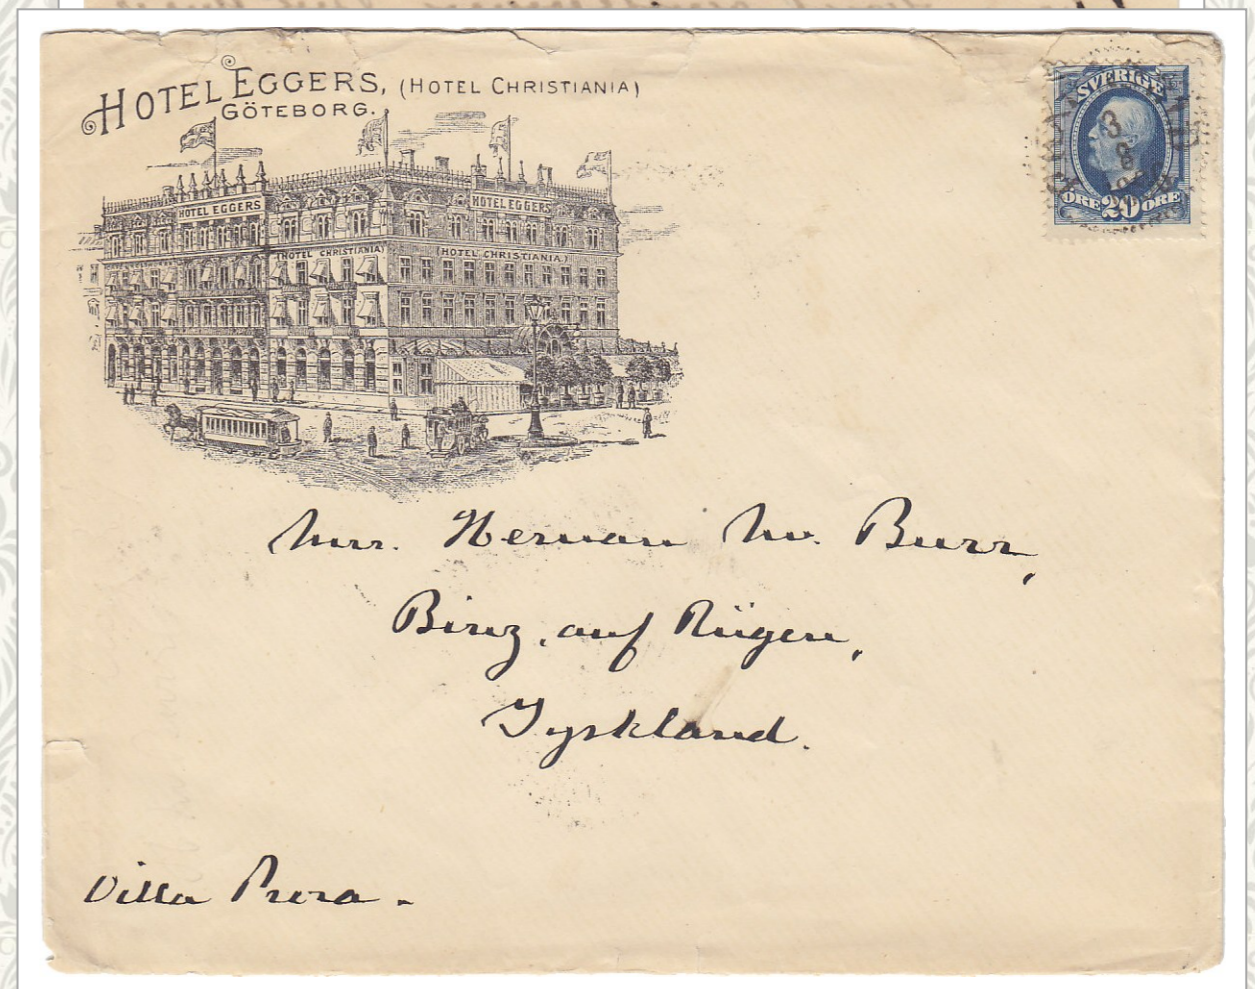 HOTEL EGGERS, (HOTEL CHRISTIANIA)
GÖTEBORG.
HOTEL EGGERS
HOTEL EGGERS
(HOTEL CHRISTIANIA)
(HOTEL CHRISTIANIA)
SVERIGE
3
8
ÖRE 20 ÖRE
Mrs. Herman M. Burr,
Binz, auf Rügen,
Tyskland.
Villa Prora.